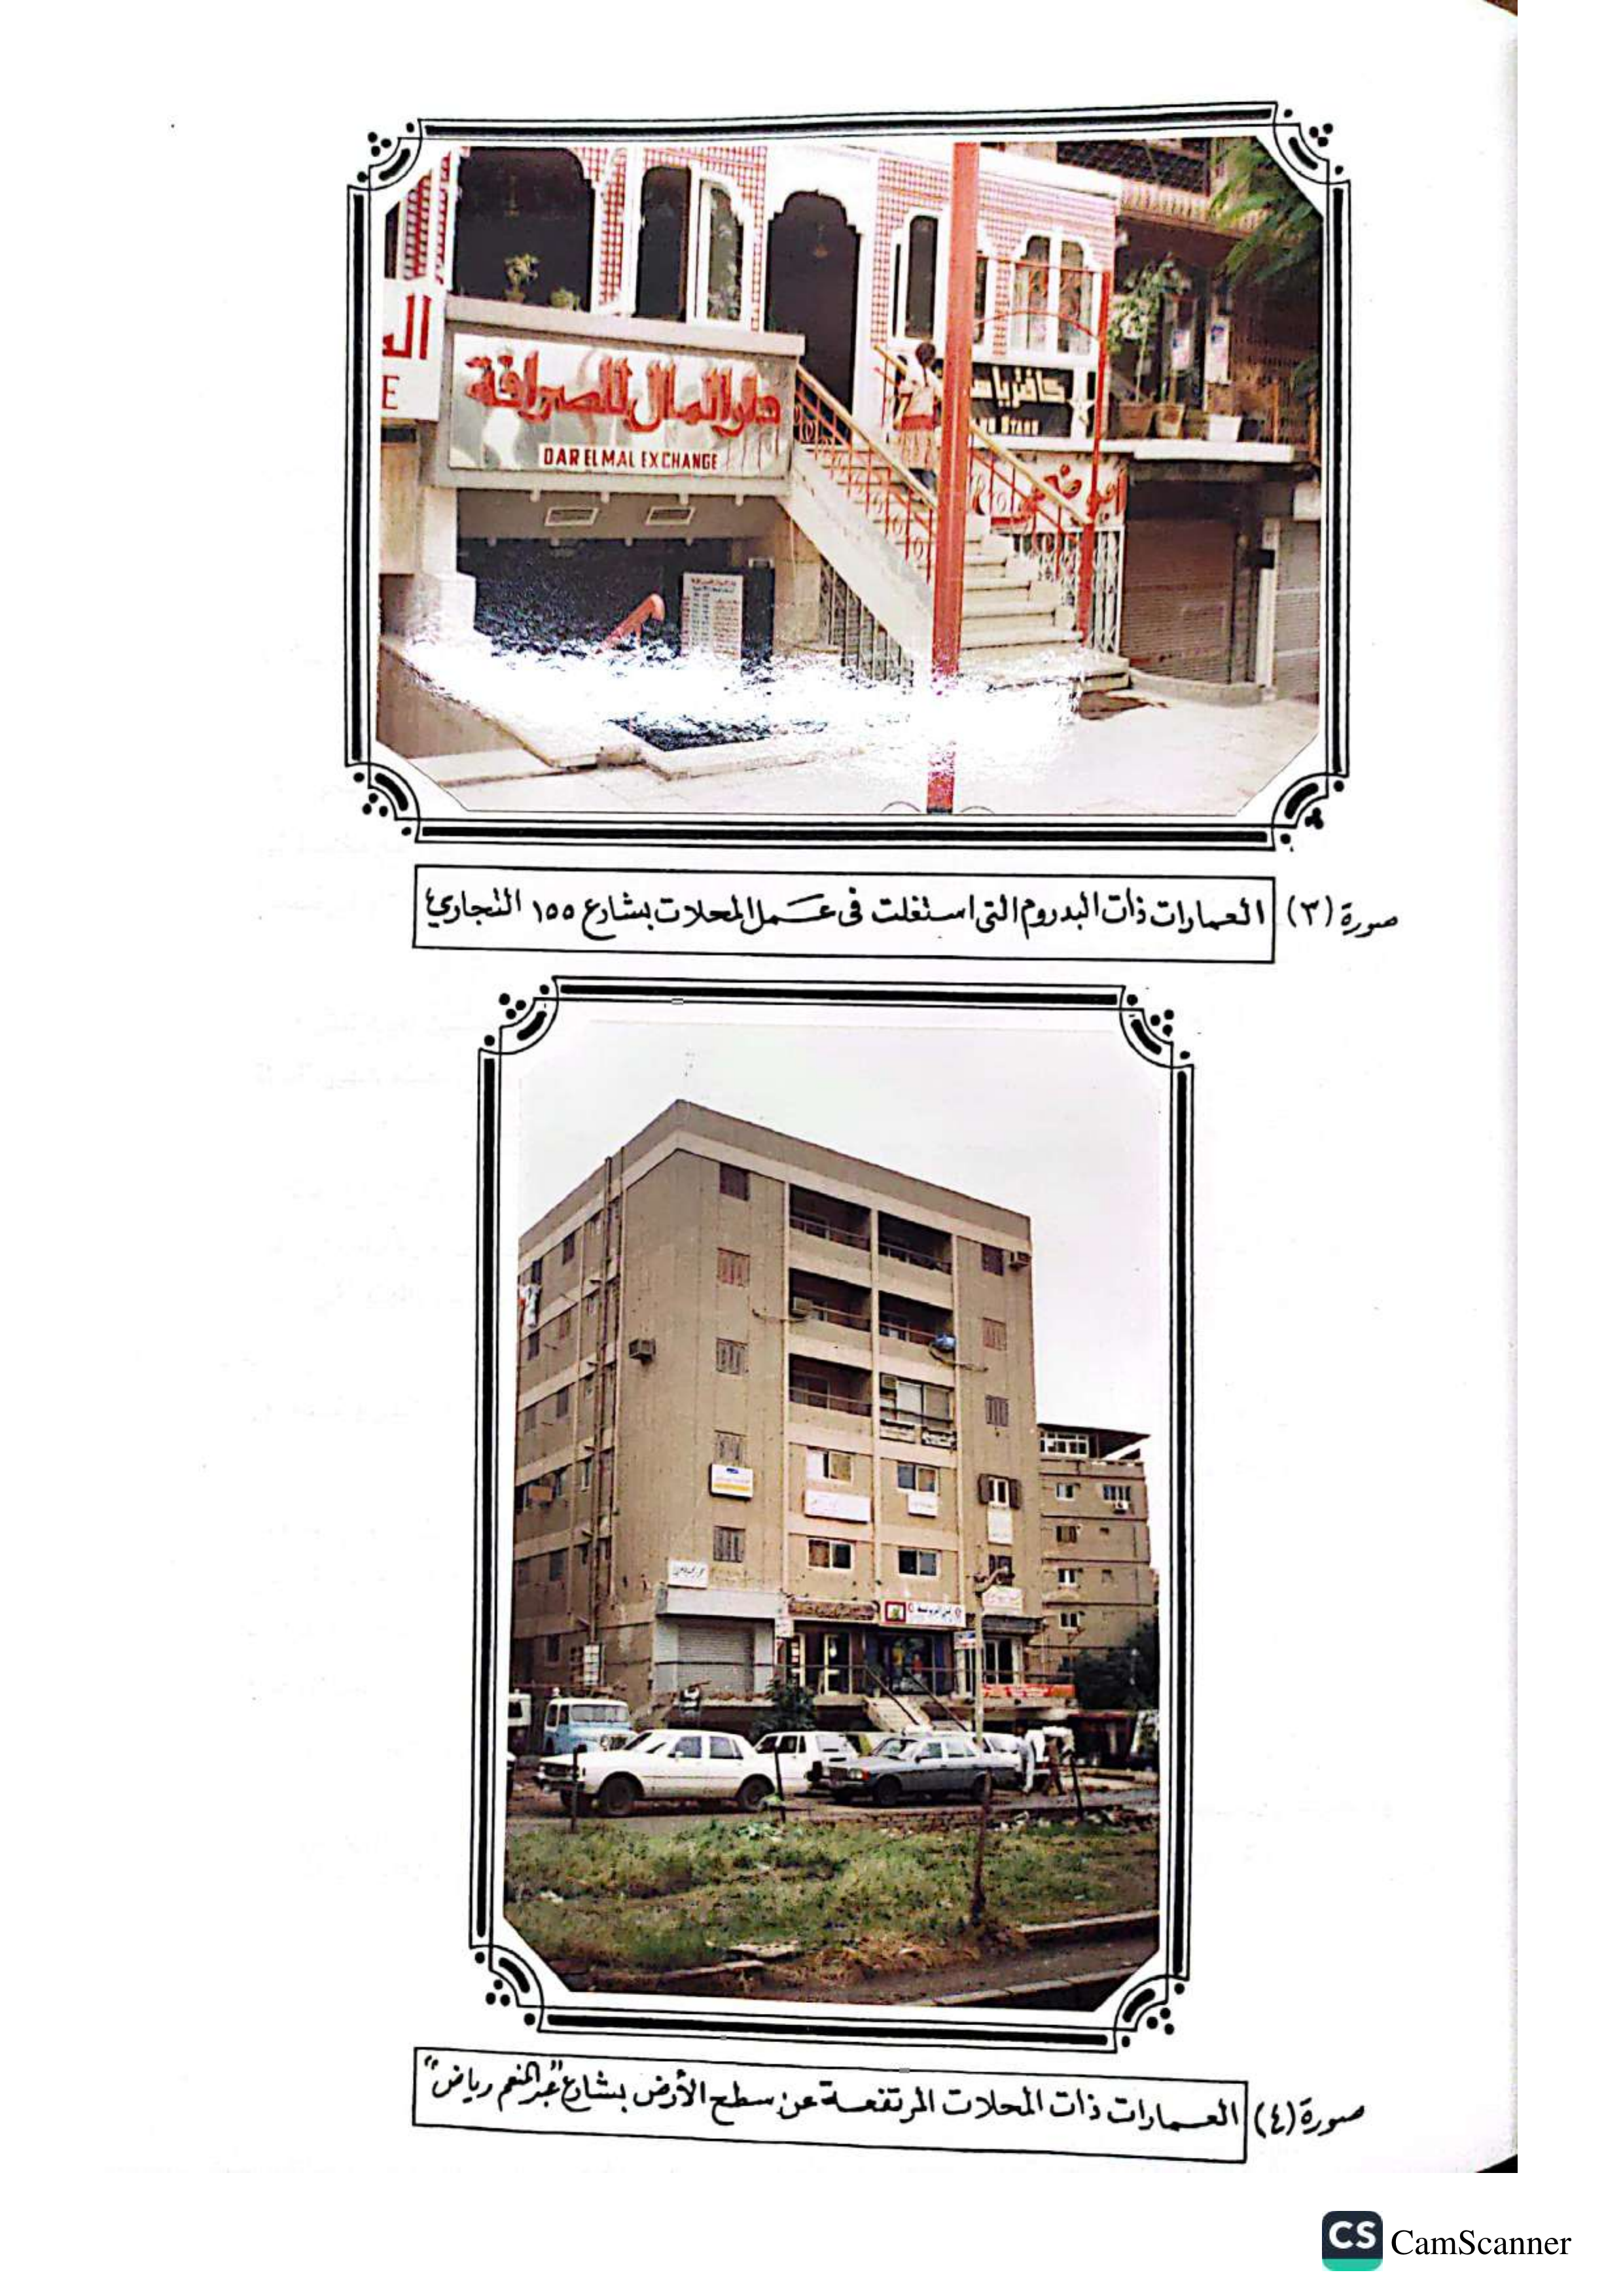 ال
E
دار المال للصرافة
DAR ELMAL EXCHANGE
صورة (٣) العمارات ذات البدروم التى استغلت فى عمل المحلات بشارع ١٥٥ التجارى
صورة (٤) العمارات ذات المحلات المرتفعة عن سطح الأرض بشارع "عبد المنعم رياض"
CS CamScanner